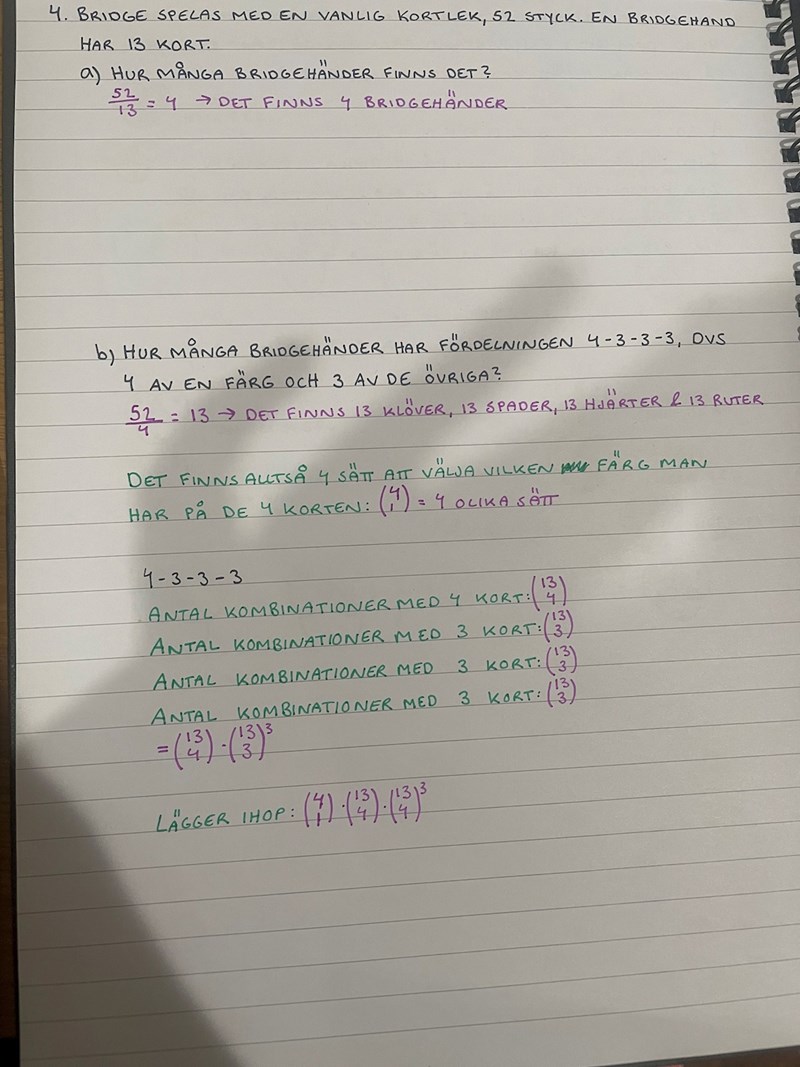 4. BRIDGE SPELAS MED EN VANLIG KORTLEK, 52 STYCK. EN BRIDGEHAND
HAR 13 KORT.
a) HUR MÅNGA BRIDGEHÄNDER FINNS DET?
52/13 = 4 → DET FINNS 4 BRIDGEHÄNDER
b) HUR MÅNGA BRIDGEHÄNDER HAR FÖRDELNINGEN 4-3-3-3, DVS
4 AV EN FÄRG OCH 3 AV DE ÖVRIGA?
52/4 = 13 → DET FINNS 13 KLÖVER, 13 SPADER, 13 HJÄRTER & 13 RUTER
DET FINNS ALLTSÅ 4 SÄTT ATT VÄLJA VILKEN FÄRG MAN
HAR PÅ DE 4 KORTEN: (4 1) = 4 OLIKA SÄTT
4-3-3-3
ANTAL KOMBINATIONER MED 4 KORT: (13 4)
ANTAL KOMBINATIONER MED 3 KORT: (13 3)
ANTAL KOMBINATIONER MED 3 KORT: (13 3)
ANTAL KOMBINATIONER MED 3 KORT: (13 3)
= (13 4) · (13 3)³
LÄGGER IHOP: (4 1) · (13 4) · (13 4)³